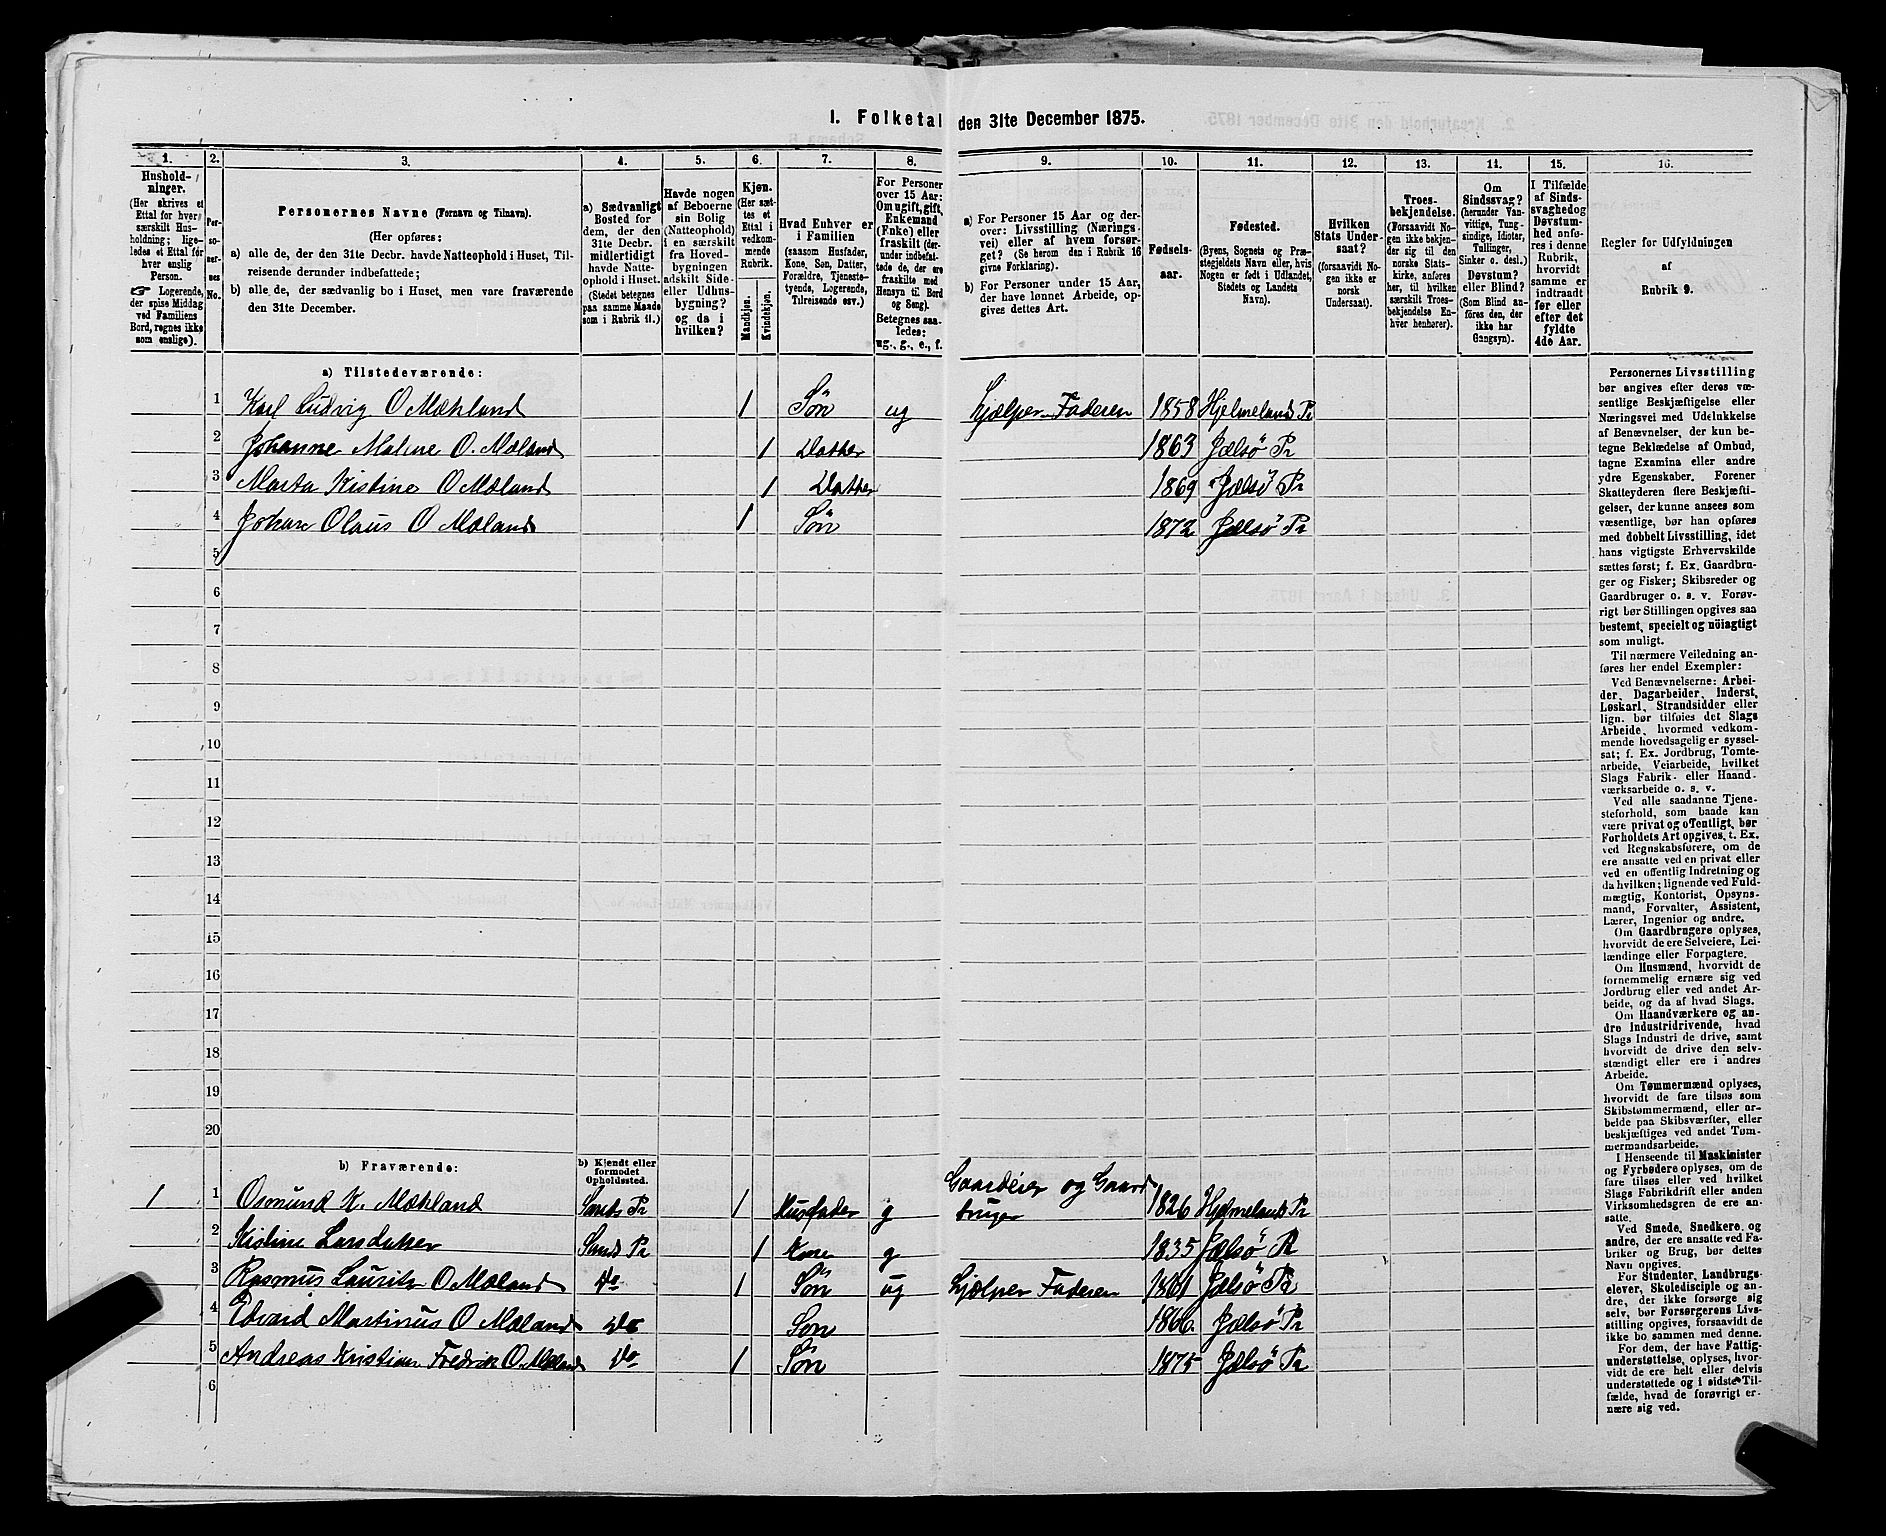 1. Folketal den 31te December 1875.
1. 2. 3. 4. 5. 6. 7. 8. 9. 10. 11. 12. 13. 14. 15. 16.
Hushold-
ninger.
(Her skrives et
Ettal for hver
særskilt Hus-
holdning; lige-
ledes et Ettal for
hver enslig
Person.
☞ Logerende,
der spise Middag
ved Familiens
Bord, regnes ikke
som enslige).
Per-
so-
ner-
nes
No.
Personernes Navne (Fornavn og Tilnavn).
(Her opføres:
a) alle de, der den 31te Decbr. havde Natteophold i Huset, Til-
reisende derunder indbefattede;
b) alle de, der sædvanlig bo i Huset, men vare fraværende
den 31te December.
a) Sædvanligt
Bosted for
dem, der den
31te Decbr.
midlertidigt
havde Natte-
ophold i Huset.
(Stedet betegnes
paa samme Maade
som i Rubrik 11.)
Havde nogen
af Beboerne
sin Bolig
(Natteophold)
i en særskilt
fra Hoved-
bygningen
adskilt Side-
eller Udhus-
bygning?
og da i
hvilken?
Kjøn.
(Her sæt-
tes et
Ettal i
vedkom-
mende
Rubrik.
Mandkjøn.
Kvindekjøn.
Hvad Enhver er
i Familien
(saasom Husfader,
Kone, Søn, Datter,
Forældre, Tjeneste-
tyende, Logerende,
Tilreisende osv.)
For Personer
over 15 Aar:
Om ugift, gift,
Enkemand
(Enke) eller
fraskilt (der-
under indbefat-
tede de, der ere
fraskilte med
Hensyn til Bord
og Seng).
Betegnes saa-
ledes:
ug., g., e., f.
a) For Personer 15 Aar og der-
over: Livsstilling (Nærings-
vei) eller af hvem forsør-
get? (Se herom den i Rubrik 16
givne Forklaring).
b) For Personer under 15 Aar,
der have lønnet Arbeide, op-
gives dettes Art.
Fødsels-
aar.
Fødested.
(Byens, Sognets og Præ-
stegjeldets Navn eller, hvis
Nogen er født i Udlandet,
Stedets og Landets
Navn).
Hvilken
Stats Under-
saat?
(forsaavidt No-
gen ikke er
norsk
Undersaat).
Troes-
bekjendelse.
(Forsaavidt No-
gen ikke bekjen-
der sig til den
norske Stats-
kirke, anføres
her, til hvilken
særskilt Troes-
bekjendelse En-
hver henhører).
Om
Sindssvag?
(herunder Van-
vittige, Tung-
sindige, Idioter,
Tullinger,
Sinker o. desl.)
Døvstum?
eller Blind?
(Som Blind an-
føres den, der
ikke har
Gangsyn).
I Tilfælde
af Sinds-
svaghed og
Døvstum-
hed anfø-
res i denne
Rubrik,
hvorvidt
samme er
indtraadt
før eller
efter det
fyldte
4de Aar.
Regler for Udfyldningen
af
Rubrik 9.
a) Tilstedeværende:
1 Karl Ludvig O Mæhland 1 Søn ug hjælper Faderen 1858 Hjelmeland Pr
2 Johanne Maline O. Mæland 1 Datter 1863 Jælsö Pr
3 Marta Kistine O Mæland 1 Datter 1869 Jælsö Pr
4 Johan Olaus O Mæland 1 Søn 1872 Jælsö Pr
5
6
7
8
9
10
11
12
13
14
15
16
17
18
19
20
b) Fraværende:
b) Kjendt eller
formodet
Opholdssted.
1 1 Osmund K. Mæhland Sands Pr 1 Husfader g Gaardeier og Gaard
bruger 1826 Hjelmeland Pr
2 Kistine Larsdatter Sands Pr 1 Kone g 1835 Jælsö Pr
3 Rasmus Lauritz O Mæland Do 1 Søn ug hjælper Faderen 1861 Jælsö Pr
4 Edvard Martinus O Mæland Do Søn 1866 Jælsö Pr
5 Andreas Kristian Fredrik O. Mæland Do 1 Søn 1875 Jælsö Pr
6
Personernes Livsstilling
bør angives efter deres væ-
sentlige Beskjæftigelse eller
Næringsvei med Udelukkelse
af Benævnelser, der kun be-
tegne Beklædelse af Ombud,
tagne Examina eller andre
ydre Egenskaber. Forener
Skatteyderen flere Beskjæfti-
gelser, der kunne ansees som
væsentlige, bør han opføres
med dobbelt Livsstilling, idet
hans vigtigste Erhvervskilde
sættes først; f. Ex. Gaardbru-
ger og Fisker; Skibsreder og
Gaardbruger o. s. v. Forøv-
rigt bør Stillingen opgives saa
bestemt, specielt og nöiagtigt
som muligt.
Til nærmere Veiledning an-
føres her endel Exempler:
Ved Benævnelserne: Arbei-
der, Dagarbeider, Inderst,
Løskarl, Strandsidder eller
lign. bør tilføies det Slags
Arbeide, hvormed vedkom-
mende hovedsagelig er syssel-
sat; f. Ex. Jordbrug, Tomte-
arbeide, Veiarbeide, hvilket
Slags Fabrik- eller Haand-
værksarbeide o. s. v.
Ved alle saadanne Tjene-
steforhold, som baade kan
være privat og offentligt, bør
Forholdets Art opgives, t. Ex.
ved Regnskabsførere, om de
ere ansatte ved en privat eller
ved en offentlig Indretning og
da hvilken; lignende ved Fuld-
mægtig, Kontorist, Opsyns-
mand, Forvalter, Assistent,
Lærer, Ingeniør og andre.
Om Gaardbrugere oplyses,
hvorvidt de ere Selveiere, Lei-
lændinge eller Forpagtere.
Om Husmænd, hvorvidt de
fornemmelig ernære sig ved
Jordbrug eller ved andet Ar-
beide, og da af hvad Slags.
Om Haandværkere og an-
dre Industridrivende, hvad
Slags Industri de drive, samt
hvorvidt de drive den selv-
stændigt eller ere i andres
Arbeide.
Om Tømmermænd oplyses,
hvorvidt de fare tilsøs som
Skibstømmermænd, eller ar-
beide paa Skibsværfter, eller
beskjæftiges ved andet Tøm-
mermandsarbeide.
I Henseende til Maskinister
og Fyrbødere oplyses, om de
fare tilsøs eller ved hvilket
Slags Fabrikdrift eller anden
Virksomhedsgren de ere an-
satte.
Ved Smede, Snedkere og
andre, der ere ansatte ved Fa-
briker og Brug, bør dettes
Navn opgives.
For Studenter, Landbrugs-
elever, Skoledisciple og an-
dre, der ikke forsørge sig
selv, bør Forsørgerens Livs-
stilling opgives, forsaavidt de
ikke bo sammen med denne.
For dem, der have Fattig-
understøttelse, oplyses, hvor-
vidt de ere helt eller delvis
understøttede og i sidste Til-
fælde, hvad de forøvrigt er-
nære sig ved.